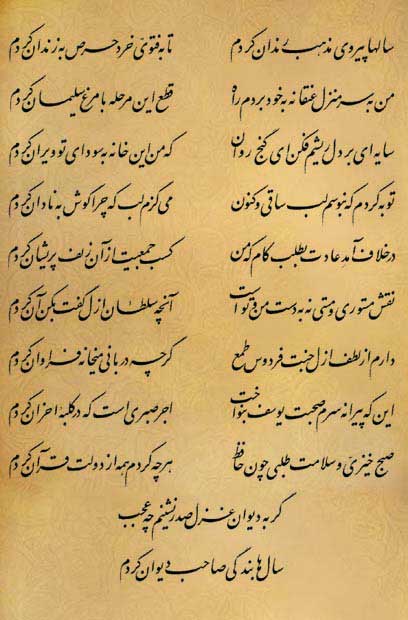 سالها پیروی مذهب رندان کردم تا به فتویّ خرد حرص به زندان کردم
من به سر منزل عنقا نه به خود بردم راه قطع این مرحله با مرغ سلیمان کردم
سایه ای بر دل ریشم فکن ای گنج روان که من این خانه به سودای تو ویران کردم
توبه کردم که نبوسم لب ساقی و کنون می گزم لب که چرا گوش به نادان کردم
در خلاف آمد عادت بطلب کام که من کسب جمعیت از آن زلف پریشان کردم
نقش مستوری و مستی نه به دست من و تواست آنچه سلطان ازل گفت بکن آن کردم
دارم از لطف ازل جنت فردوس طمع گرچه دربانی میخانه فراوان کردم
این که پیرانه سرم صحبت یوسف بنواخت اجر صبری است که در کلبه احزان کردم
صبح خیزیّ و سلامت طلبی چون حافظ هرچه کردم همه از دولت قرآن کردم
گر به دیوان غزل صدر نشینم چه عجب
سال ها بندگی صاحب دیوان کردم